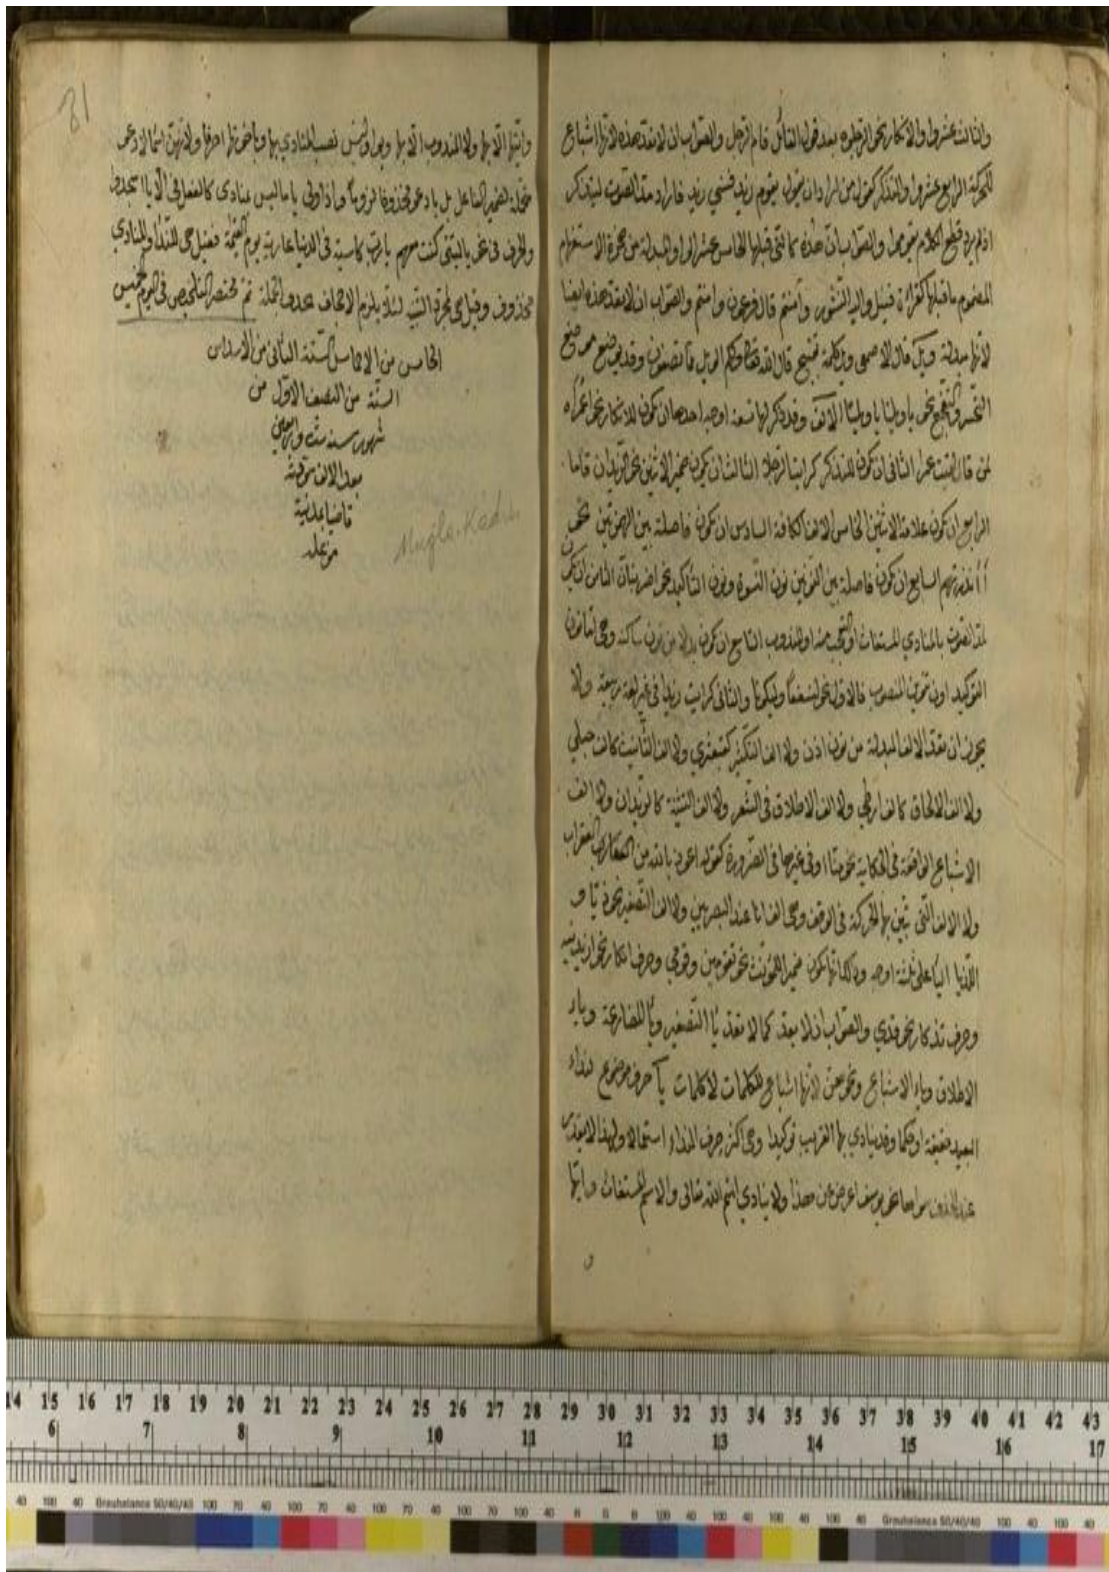 والثالث عشر واو الانكار نحو الرجلوه بعد قول القائل قام الرجل والصواب ان لا تعد هذه لانها اشباع
للحركة الرابع عشر واو التذكر كقول من اراد ان يقول يقوم زيد فنسي زيد فاراد مد الصوت ليتذكر
اذ لم يرد قطع الكلام يقومو والصواب ان هذه كالتي قبلها الخامس عشر الواو المبدلة من همزة الاستفهام
المضموم ما قبلها كقراءة قنبل واليه النشور وأمنتم قال فرعون وامنتم والصواب ان لا تعد هذه ايضا
لانها مبدلة ويل قال الاصمعي ويل كلمة تقبيح قال الله تعالى ولكم الويل مما تصفون وقد يوضع موضع
التحسر والتفجع نحو يا ويلتا يا ويلتنا الالف وقد ذكر لها تسعة اوجه احدها ان تكون للانكار نحو اعمراه
لمن قال لقيت عمرا الثاني ان تكون للتذكر كرايت الرجلا الثالث ان تكون ضمير الاثنين نحو الزيدان قاما
الرابع ان تكون علامة الاثنين الخامس الالف الكافة السادس ان تكون فاصلة بين الهمزتين نحو
أأنذرتهم السابع ان تكون فاصلة بين النونين نون النسوة ونون التاكيد نحو اضربنان الثامن ان تكون
لمد الصوت بالمنادي المستغاث او المتعجب منه او المندوب التاسع ان تكون بدلا من نون ساكنة وهي اما نون
التوكيد او تنوين المنصوب فالاول نحو لنسفعا وليكونا والثاني كرايت زيدا في غير لغة ربيعة ولا
يجوز ان تعد الالف المبدلة من نون اذن ولا الف التكثير كقبعثرى ولا الف التأنيث كالف حبلى
ولا الف الالحاق كالف ارطى ولا الف الاطلاق في الشعر ولا الف التثنية كالزيدان ولا الف
الاشباع الواقعة في الحكاية نحو منا او في غيرها في الضرورة كقوله اعوذ بالله من العقراب
ولا الالف التي تبين بها الحركة في الوقف وهي الف انا عند البصريين ولا الف التصغير نحو ذيا و
اللذيا اليا على ثلثة اوجه وذلك انها تكون ضمير المؤنث نحو تقومين وقومي وحرف انكار نحو ازيدنيه
وحرف تذكار نحو قدي والصواب ان لا يعد كما لا تعد يا التصغير ويا المضارعة وياء
الاطلاق وياء الاشباع ونحوهن لانها اجزاء للكلمات لا كلمات يا حرف موضوع لنداء
البعيد حقيقة او حكما وقد ينادي بها القريب توكيدا وهي اكثر حرف النداء استعمالا ولهذا لا يقدر
عند الحذف سواها نحو يوسف اعرض عن هذا ولا ينادي اسم الله تعالى والاسم المستغاث وايها
و
31
وايتها الا بها ولا المندوب الا بها وبوا وليس نصب المنادي بها وباخواتها احرفا ولا بهن اسما لادعو
متحملة لضمير الفاعل بل بادعو محذوفا لزوما واذا ولي يا ما ليس بمنادى كالفعل في الا يا اسجدوا
والحرف في نحو يا ليتني كنت معهم يا رب كاسية في الدنيا عارية يوم القيمة فقيل هي للنداء والمنادي
محذوف وقيل هي لمجرد التنبيه لئلا يلزم الاجحاف بحذف الجملة تم مختصر التلخيص في اليوم الخميس
الخامس من السدس الثاني من الاسداس
الستة من النصف الاول من
شهور سنة ست واربعين
بعد الالف
قاضيا بمدينة
موغله
Mugla-Kadısı